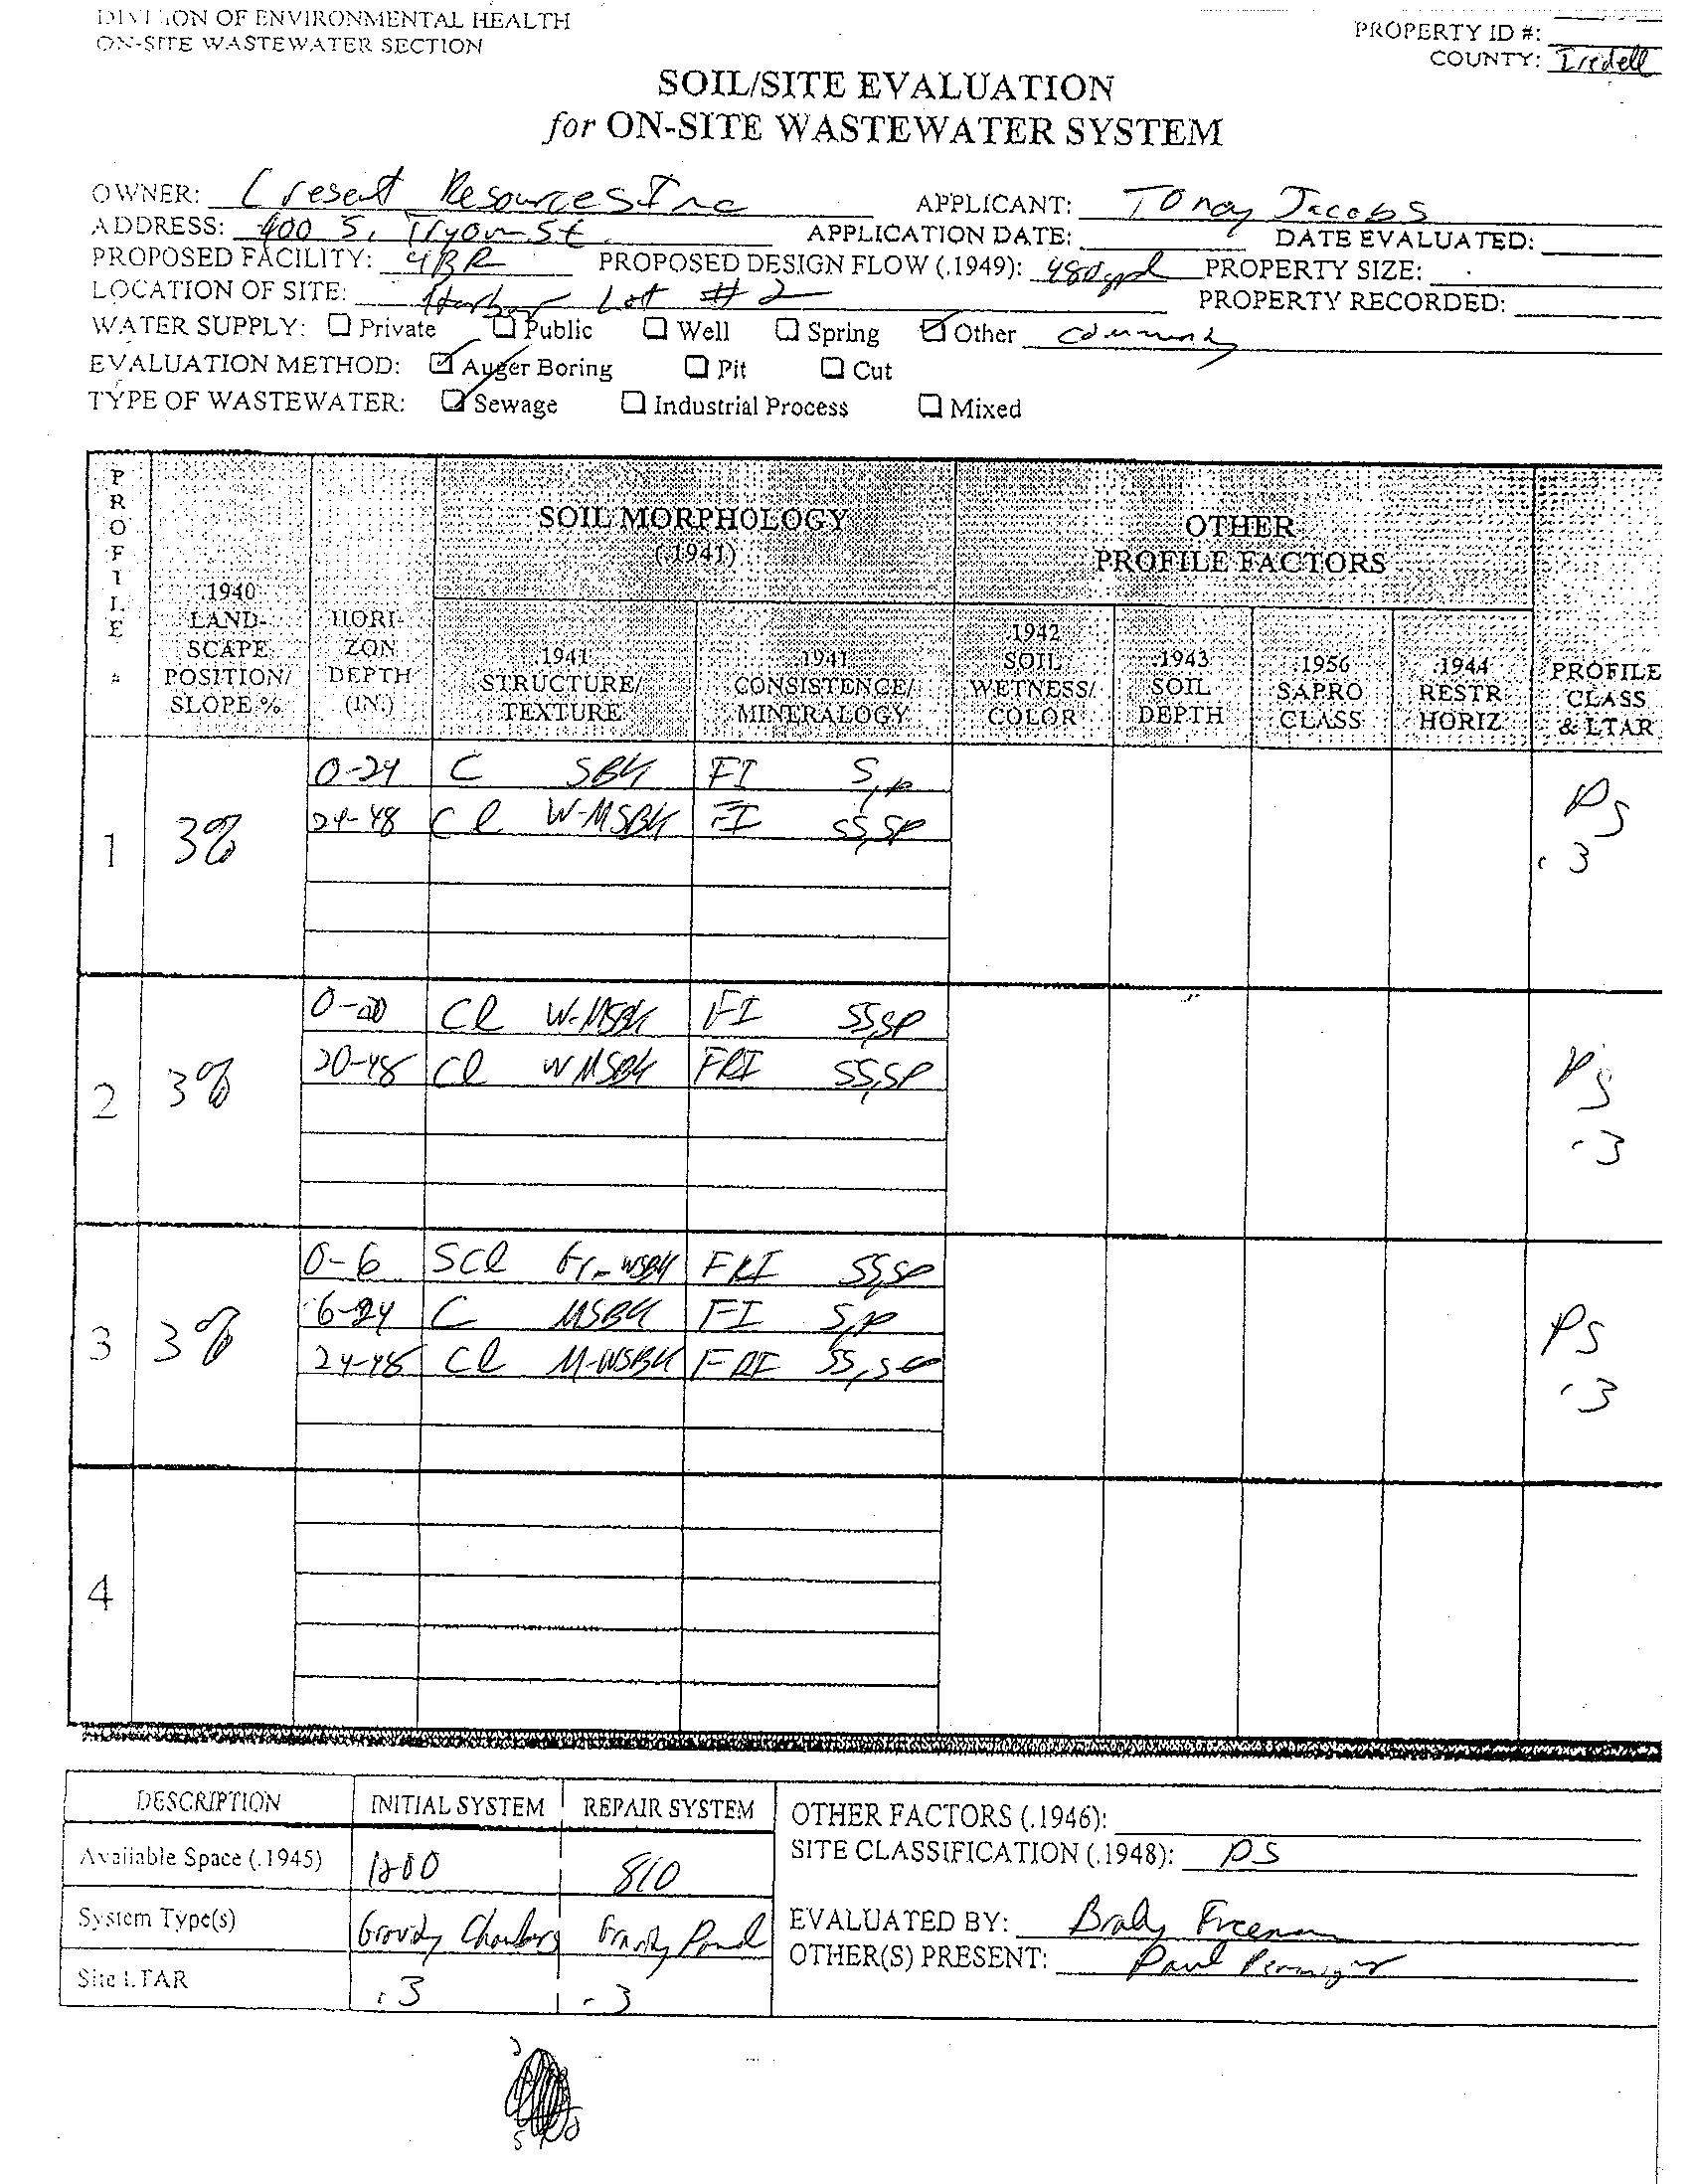 DIVISION OF ENVIRONMENTAL HEALTH
ON-SITE WASTEWATER SECTION
PROPERTY ID #:
COUNTY: Iredell
SOIL/SITE EVALUATION
for ON-SITE WASTEWATER SYSTEM
OWNER: Cresent Resources Inc APPLICANT: Tonay Jacobs
ADDRESS: 400 S. Tryon St. APPLICATION DATE: DATE EVALUATED:
PROPOSED FACILITY: 4BR PROPOSED DESIGN FLOW (.1949): 480gpd PROPERTY SIZE:
LOCATION OF SITE: Lot # 2 PROPERTY RECORDED:
WATER SUPPLY: Private Public Well Spring Other
EVALUATION METHOD: Auger Boring Pit Cut
TYPE OF WASTEWATER: Sewage Industrial Process Mixed
PROFILE #
1940 LAND-SCAPE POSITION/ SLOPE %
HORI-ZON DEPTH (IN.)
SOIL MORPHOLOGY (.1941)
OTHER PROFILE FACTORS
.1941 STRUCTURE/ TEXTURE
.1941 CONSISTENCE/ MINERALOGY
.1942 SOIL WETNESS/ COLOR
.1943 SOIL DEPTH
.1956 SAPRO CLASS
.1944 RESTR HORIZ
PROFILE CLASS & LTAR
1 3% PS .3
0-24 C SBK FI S,P
24-48 Cl W-MSBK FI SS,SP
2 3% PS .3
0-20 Cl W-MSBK FI SS,SP
20-48 Cl WMSBK FRI SS,SP
3 3% PS .3
0-6 SCl Gr-WSBK FRI SS,SP
6-24 C MSBK FI S,P
24-48 Cl M-WSBK FRI SS,SP
4
DESCRIPTION INITIAL SYSTEM REPAIR SYSTEM
Available Space (.1945) 1200 810
System Type(s)
Site LTAR .3 .3
OTHER FACTORS (.1946):
SITE CLASSIFICATION (.1948): PS
EVALUATED BY: Brady Freeman
OTHER(S) PRESENT: Paul